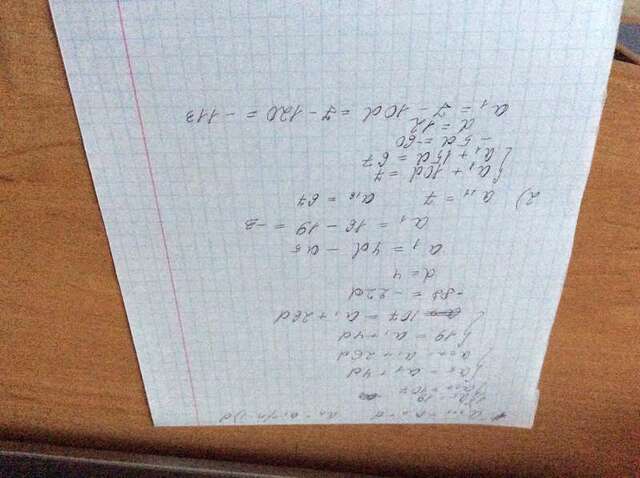 aₙ = a₁ + (n-1)d
a₅ = 19
a₂₇ = 107
{ a₅ = a₁ + 4d
{ a₂₇ = a₁ + 26d
{ 19 = a₁ + 4d
{ 107 = a₁ + 26d
-88 = -22d
d = 4
a₁ = 4d - a₅
a₁ = 16 - 19 = -3
2) a₁₁ = 7 a₁₆ = 67
{ a₁ + 10d = 7
{ a₁ + 15d = 67
-5d = -60
d = 12
a₁ = 7 - 10d = 7 - 120 = -113